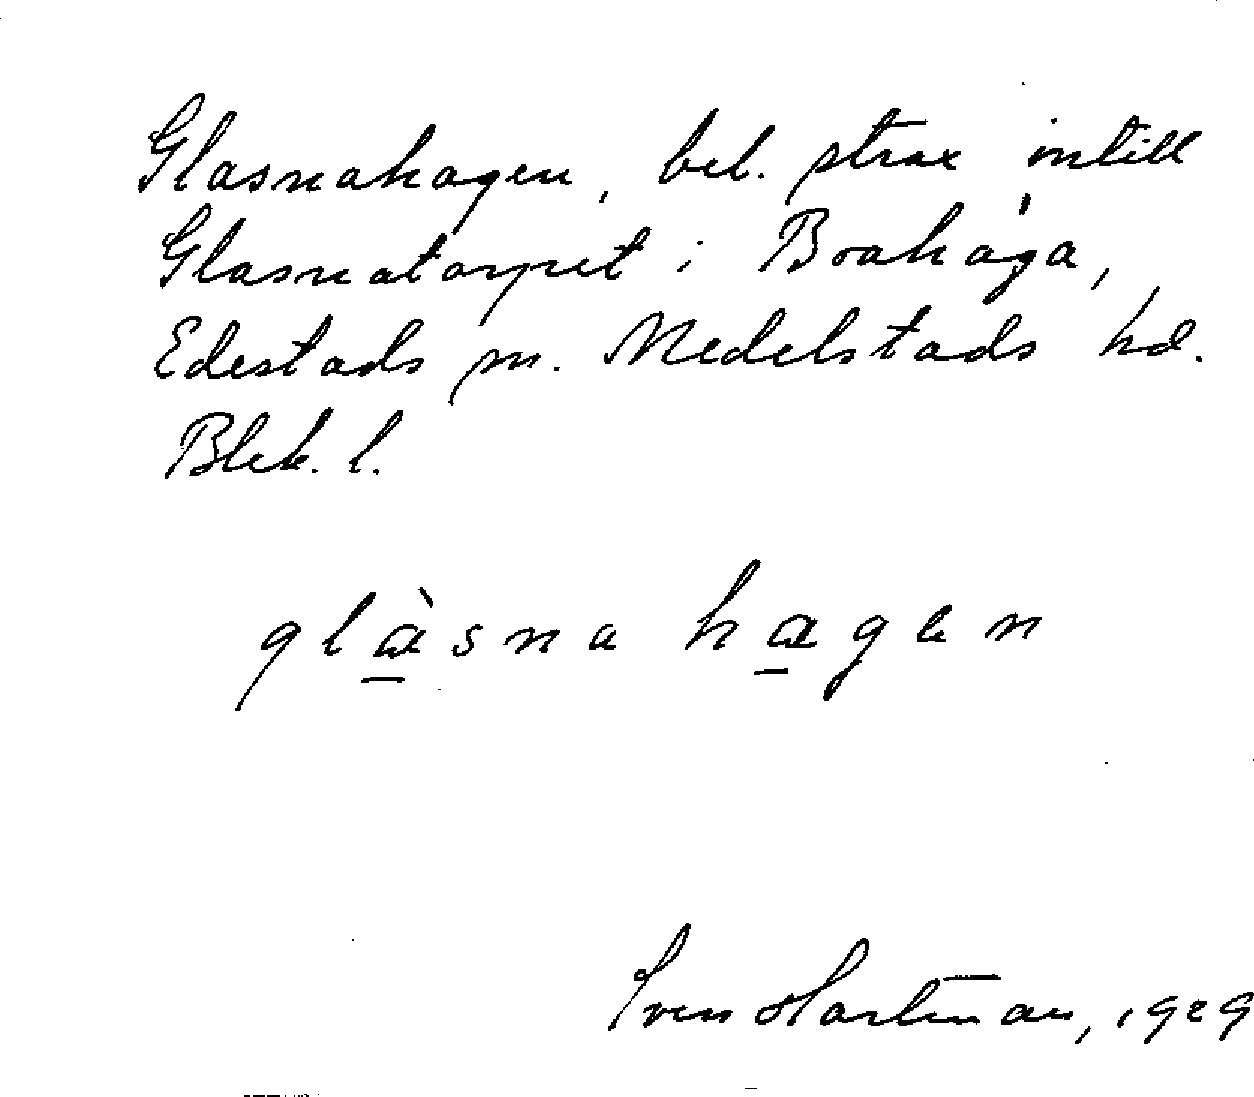 Glasnahagen, bel. strax intill
Glasnatorpet i Brahåga,
Edestads sn. Medelstads hd.
Blek. l.
glàsna hagen
Sven Hartman, 1929